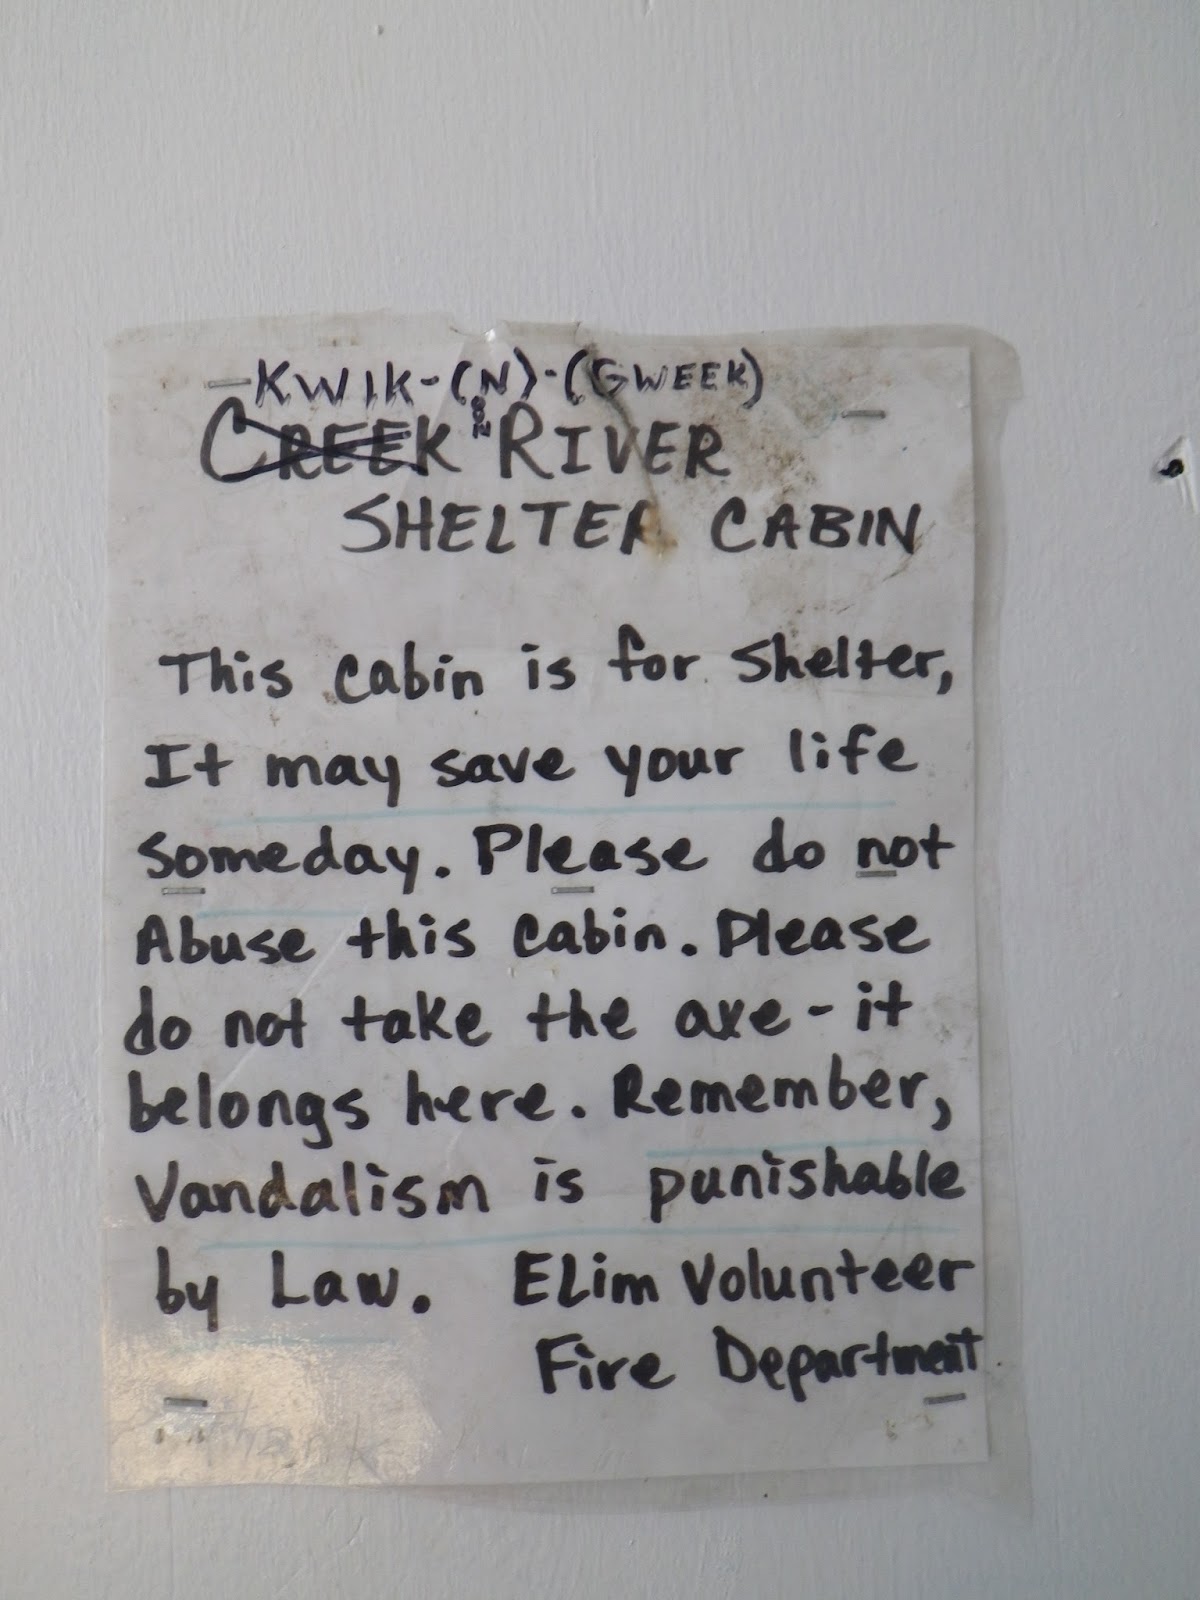 KWIK-(N)-(GWEEK)
CREEK RIVER
SHELTER CABIN
This cabin is for Shelter,
It may save your life
Someday. Please do not
Abuse this cabin. Please
do not take the axe - it
belongs here. Remember,
Vandalism is punishable
by Law. ELim Volunteer
Fire Department
Thank